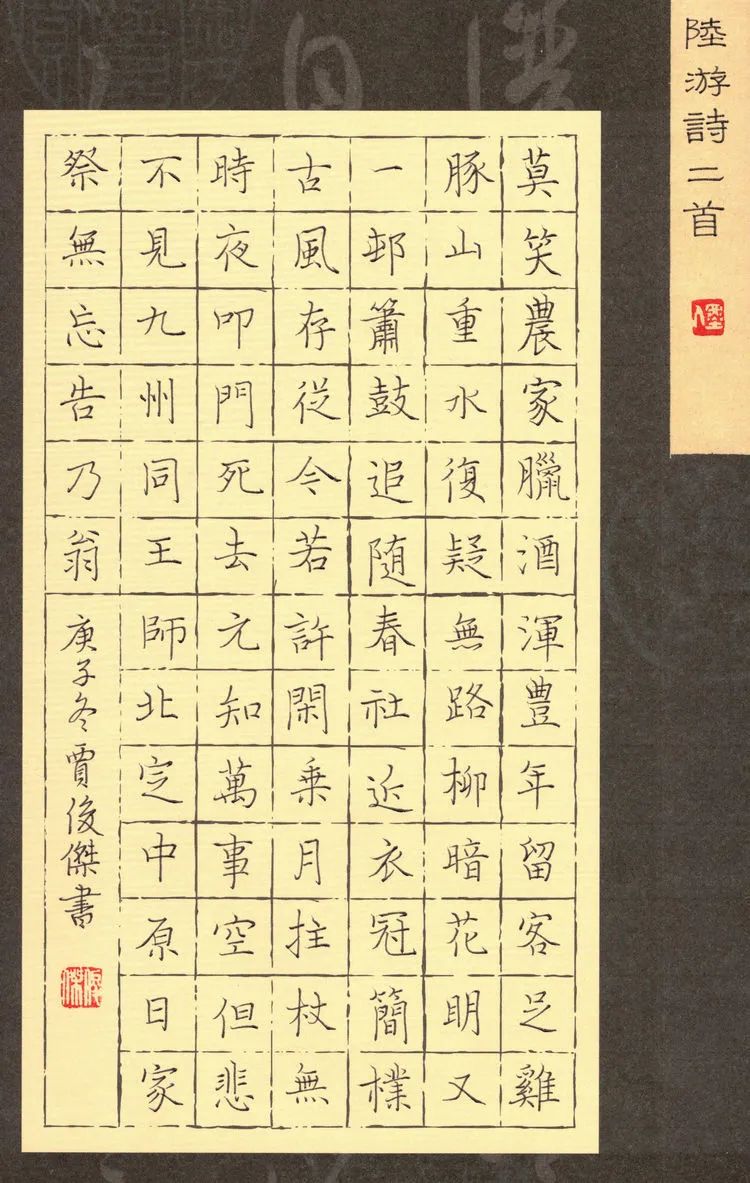 陸游詩二首
莫笑農家臘酒渾豐年留客足雞
豚山重水復疑無路柳暗花明又
一邨簫鼓追随春社近衣冠簡樸
古風存從今若許閑乗月拄杖無
時夜叩門死去元知萬事空但悲
不見九州同王師北定中原日家
祭無忘告乃翁
庚子冬賈俊傑書
俊傑